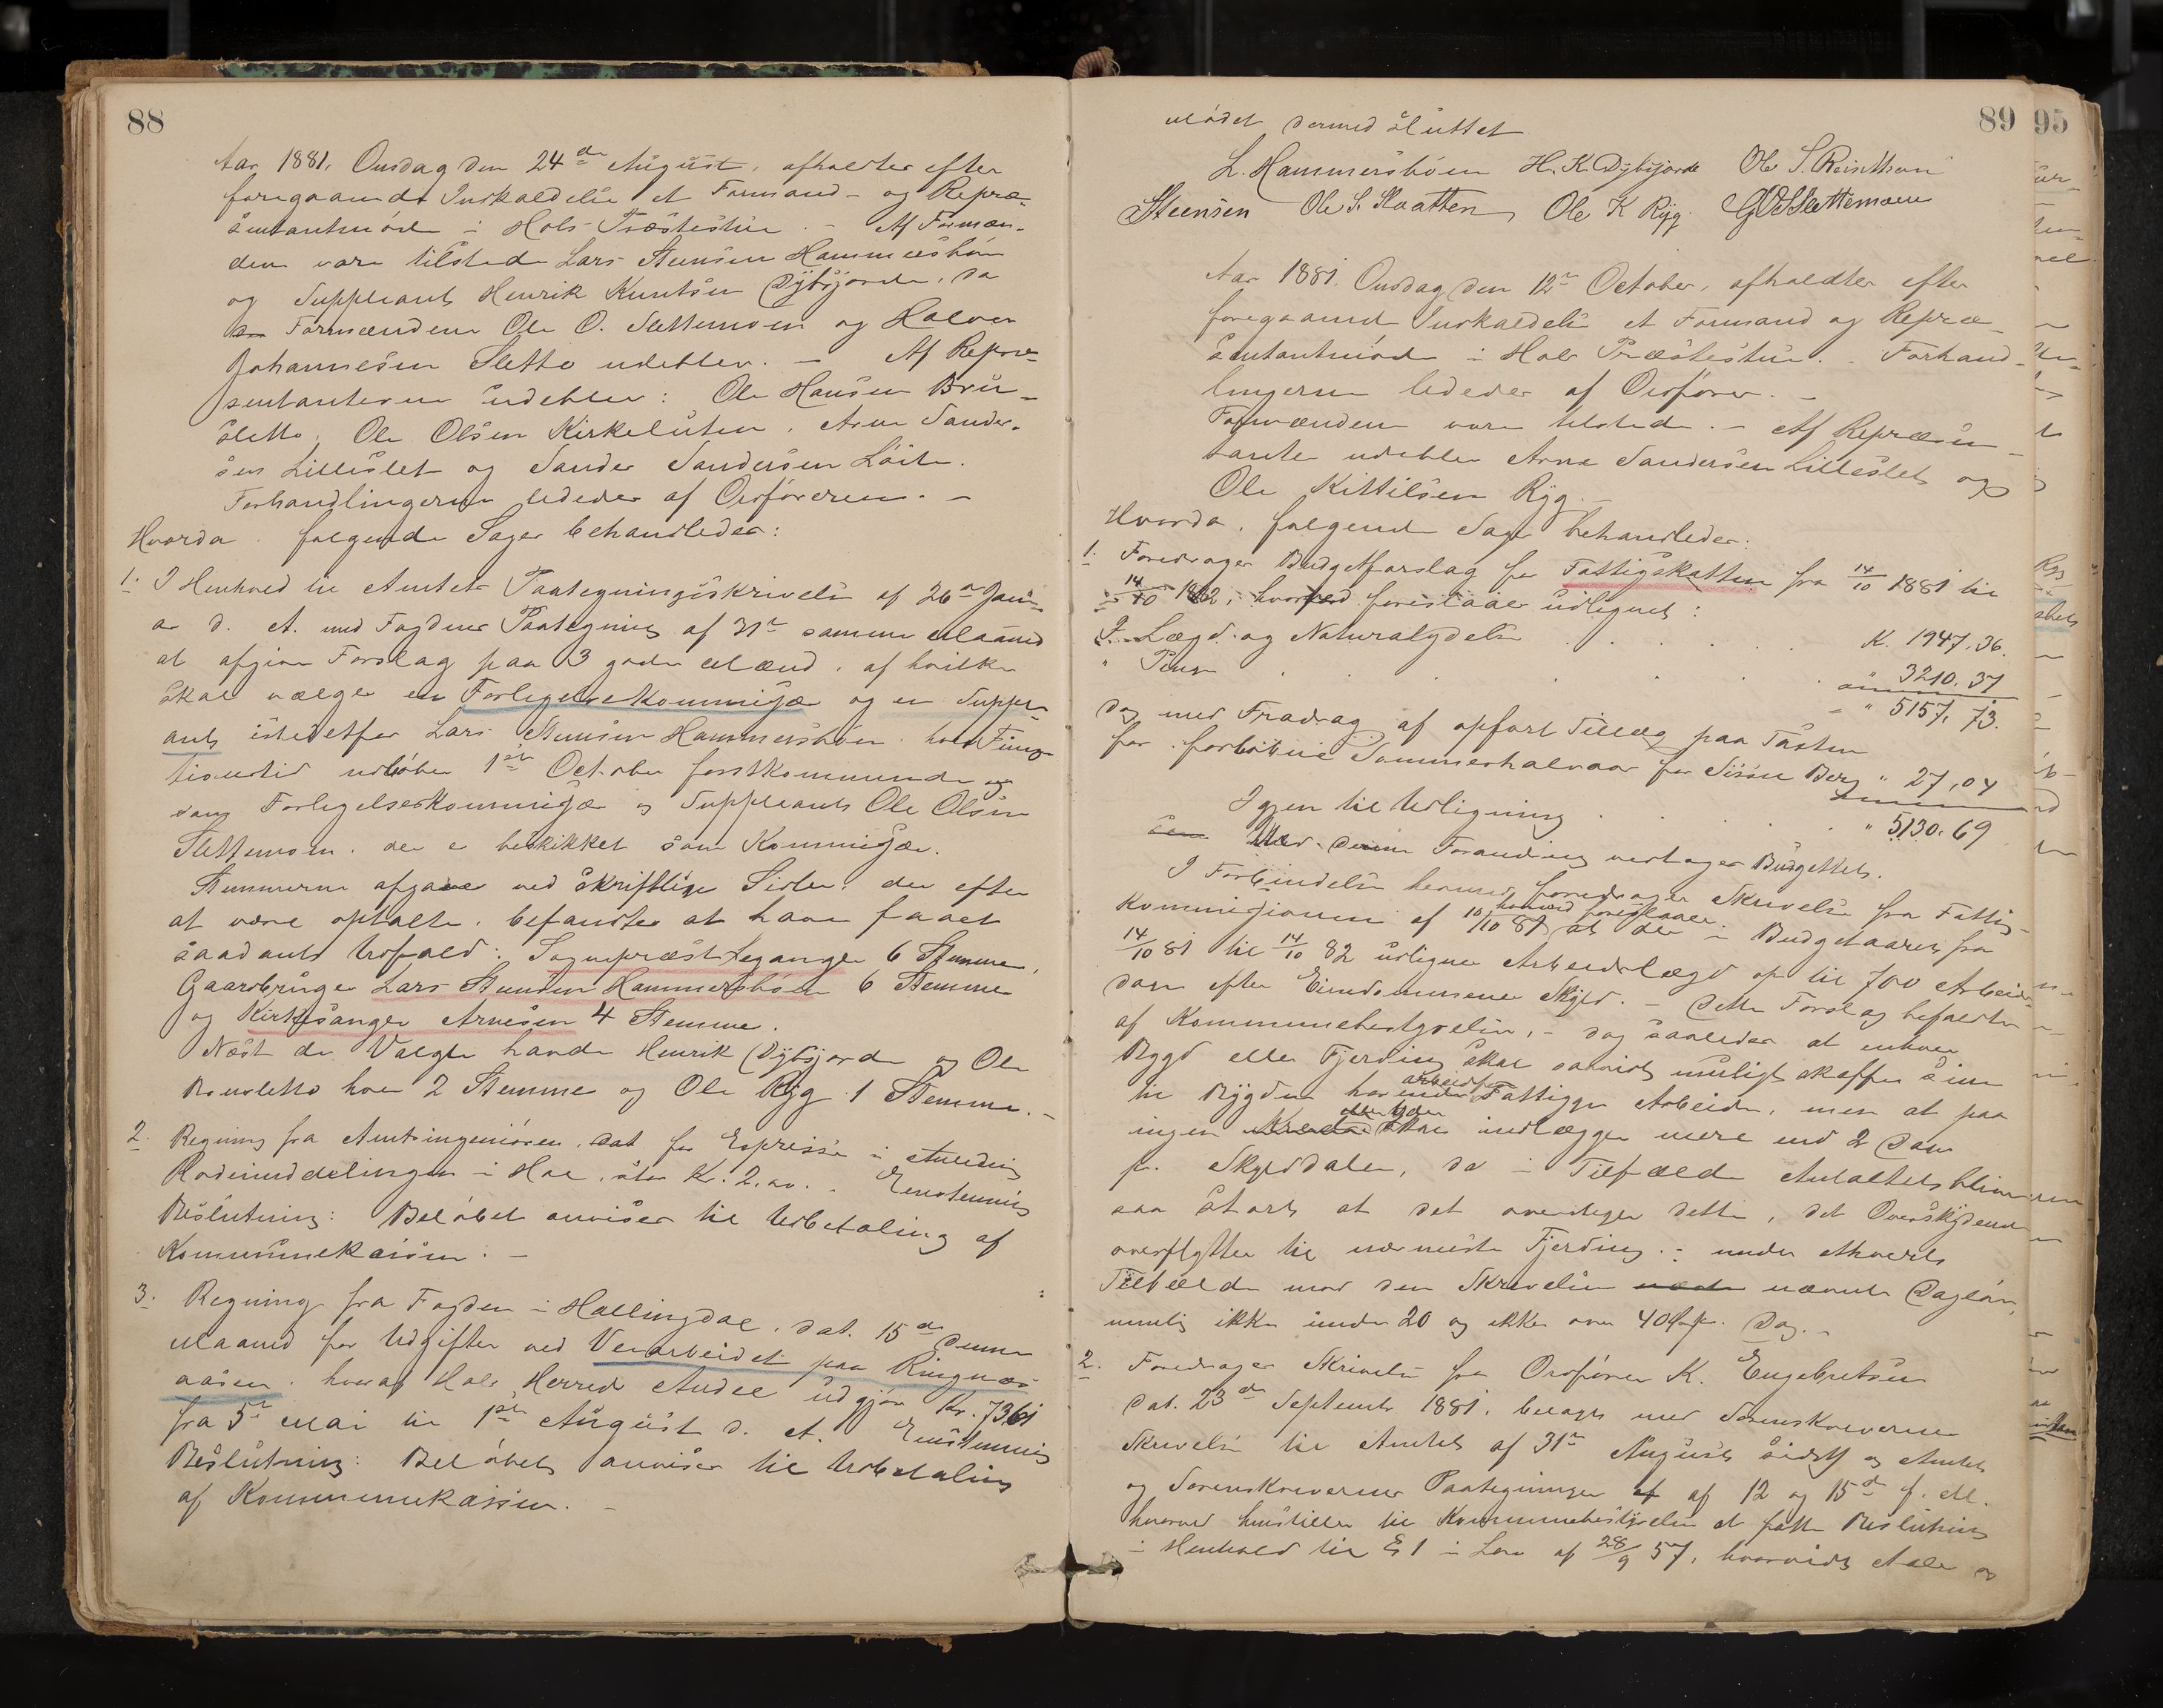 88
Aar 1881. Onsdag den 24de August, afholdtes efter
foregaaende Indkaldelse et Formand- og Repræ-
sentantmøde i Hols Præstestue. - Af Formæn-
dene vare tilstede Lars Steensen Hammersbøen
og Suppleant Henrik Knutsen Dybsjorde, da
Formændene Ole O. Slettemoen og Halvor
Johannesen Sletto udeblev. - Af Repræ-
sentanterne udeblev: Ole Hansen Bru-
sletto, Ole Olsen Kirkeluten, Arne Sander-
sen Lilleslet og Sander Sandersen Løite.
Forhandlingerne lededes af Ordføreren. -
Hvorda følgende Sager behandledes:
1. I Henhold til Amtets Paategningsskrivelse af 26de Janu-
ar d. A. med Fogdens Paategning af 31te samme Maaned
at afgive Forslag paa 3 gode Mænd, af hvilke
skal vælges en Forligelseskommissær og en Supple-
ant istedetfor Lars Steensen Hammersbøen hvis Funk-
tionstid udløber 1ste October førstkommende og
som Forligelseskommissær og Suppleant Ole Olsen
Slettemoen, der er beskikket som Kommissær.
Stemmerne afgaves ved skriftlige Sedler, der efter
at være optalte, befandtes at have faaet
saadant Udfald: Sognepræst Leganger 6 Stemmer,
Gaardbruger Lars Steensen Hammersbøen 6 Stemmer
og Kirkesanger Arnesen 4 Stemmer.
Næst de Valgte havde Henrik Dybsjorde og Ole
Brusletto hver 2 Stemmer og Ole Ryg 1 Stemme. -
2. Regning fra Amtsingeniøren, dat for Expresse i Anledning
Rodeinddelingen i Hol, stor Kr. 2.00. - Eenstemmig
Beslutning: Beløbet anvises til Udbetaling af
Kommunekassen. -
3. Regning fra Fogden i Hallingdal, dat. 15de denne
Maaned for Udgifter ved Veiarbeidet paa Ringnæs-
aasen, hvoraf Hols Herreds Andel udgjør Kr. 73,61
fra 5te Mai til 1ste August d. A. Eenstemmig
Beslutning: Beløbet anvises til Udbetaling
af Kommunekassen. -
89
95
Mødet dermed sluttet
L. Hammersbøen H. K. Dybsjorde Ole S.
Steensen Ole S. Slaatten, Ole K Ryg. Slettemoen
Aar 1881. Onsdag den 12te October, afholdtes efter
foregaaende Indkaldelse et Formand og Repræ-
sentantmøde i Hols Præstestue. - Forhand-
lingerne lededes af Ordfører. -
Formændene vare tilstede. - Af Repræsen-
tanter udeblev Arne Sandersen Lilleslet og
Ole Kittilsen Ryg. -
Hvorda følgende Sager behandledes:
1. Foredroges Budgetforslag for Fattigskatten fra 14/10 1881 til
14/10 1882, hvorved foreslaaes udlignet:
I Lægd og Naturalydelse . . . . . K. 1947.36.
" Penge . . . . . " 3210.37
" 5157,73.
dog med Fradrag af opført Tillæg paa Posten
for Sommerhalvaar for Berg " 27,04
Igjen til Udligning . . . . " 5130.69
Med denne Forandring vedtages Budgettet.
I Forbindelse hermed foredroges Skrivelse fra Fattig-
kommissionen af 10/10 81 hvorved foreslaaes at der i Budgetaaret fra
14/10 81 til 14/10 82 udlignes Arbeidslægd op til 700 Arbeids-
dage efter Eiendommenes Skyld. - Dette Forslag befaldtes
af Kommunebestyrelsen, - dog saaledes at enhver
Bygd eller Fjerding skal saavidt muligt skaffe sine
til Bygden hørende arbeidsføre Fattige Arbeide, men at paa
ingen skal indlægges mere end 2 Dage
pr. Skylddaler, da i Tilfælde Antallet bliver
saa stort at det overstiger dette, det Overskydende
overflyttes til nærmeste Fjerding. - under ethvert
Tilfælde mod den Skrivelsen nævnte Dagløn,
nemlig ikke under 20 og ikke over 40 Øre pr. Dag. -
2. Foredroges Skrivelse fra Ordfører K. Engebretsen
dat. 23de Septembr 1881, bilagt med Sorenskriverens
Skrivelse til Amtet af 31te August sidstl. og Amtets
og Sorenskriverens Paategninger af 12 og 15de f. M.
hvorved henstilles til Kommunebestyrelsen at fatte Beslutning
i Henhold til § 1 i Lov af 28/9 57, hvorvidt Aal og